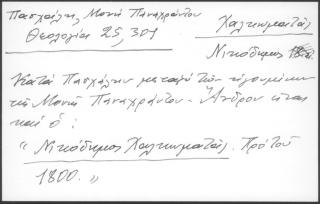 Πασχάλης, Μονή Παναχράντου
Θεολογία 25, 301
Χαλκωματάς
Νικόδημος
Κατά Πασχάλην μεταξύ των ηγουμένων
της Μονής Παναχράντου - Άνδρου είναι
και ο:
"Νικόδημος Χαλκωματάς. Πρό του
1800."